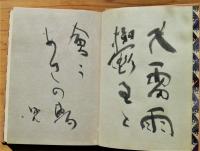 大雷雨
鬱王と
會う
あさの夢
兜子